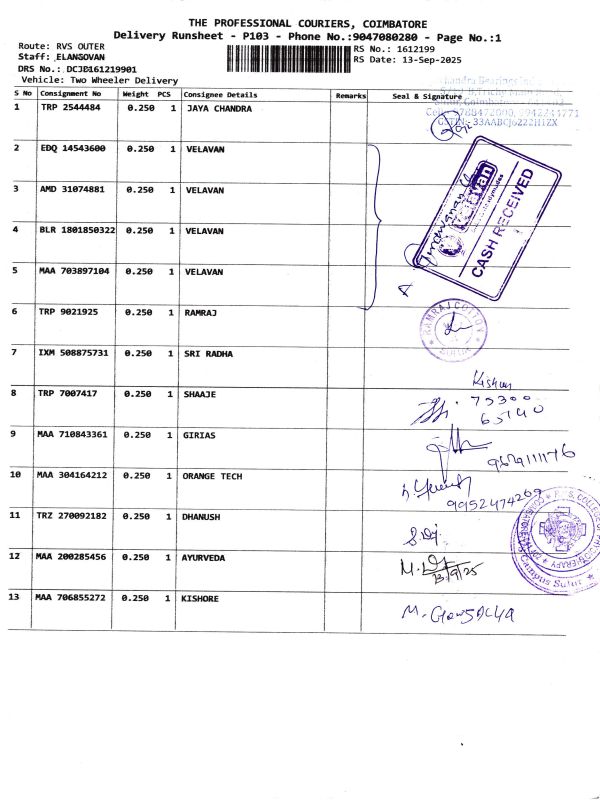 THE PROFESSIONAL COURIERS, COIMBATORE
Delivery Runsheet - P103 - Phone No.:9047080280 - Page No.:1
Route: RVS OUTER
RS No.: 1612199
Staff: ELANGOVAN
RS Date: 13-Sep-2025
DRS No.: DCJB161219901
Vehicle: Two Wheeler Delivery
S No Consignment No Weight PCS Consignee Details Remarks Seal & Signature
1 TRP 2544484 0.250 1 JAYA CHANDRA
GSTIN: 33AABCJ6222H1ZX
2 EDQ 14543600 0.250 1 VELAVAN
3 AMD 31074881 0.250 1 VELAVAN
CASH RECEIVED
4 BLR 1801850322 0.250 1 VELAVAN
5 MAA 703897104 0.250 1 VELAVAN
6 TRP 9021925 0.250 1 RAMRAJ
RAMRAJ COTTON
7 IXM 508875731 0.250 1 SRI RADHA
Kishor
8 TRP 7007417 0.250 1 SHAAJE
75300
65140
9 MAA 710843361 0.250 1 GIRIAS
10 MAA 304164212 0.250 1 ORANGE TECH
9952474269
11 TRZ 270092182 0.250 1 DHANUSH
12 MAA 200285456 0.250 1 AYURVEDA
13/9/25
Campus Sulur
13 MAA 706855272 0.250 1 KISHORE